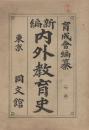 育成會編纂
新編
内外教育史
東京 同文館